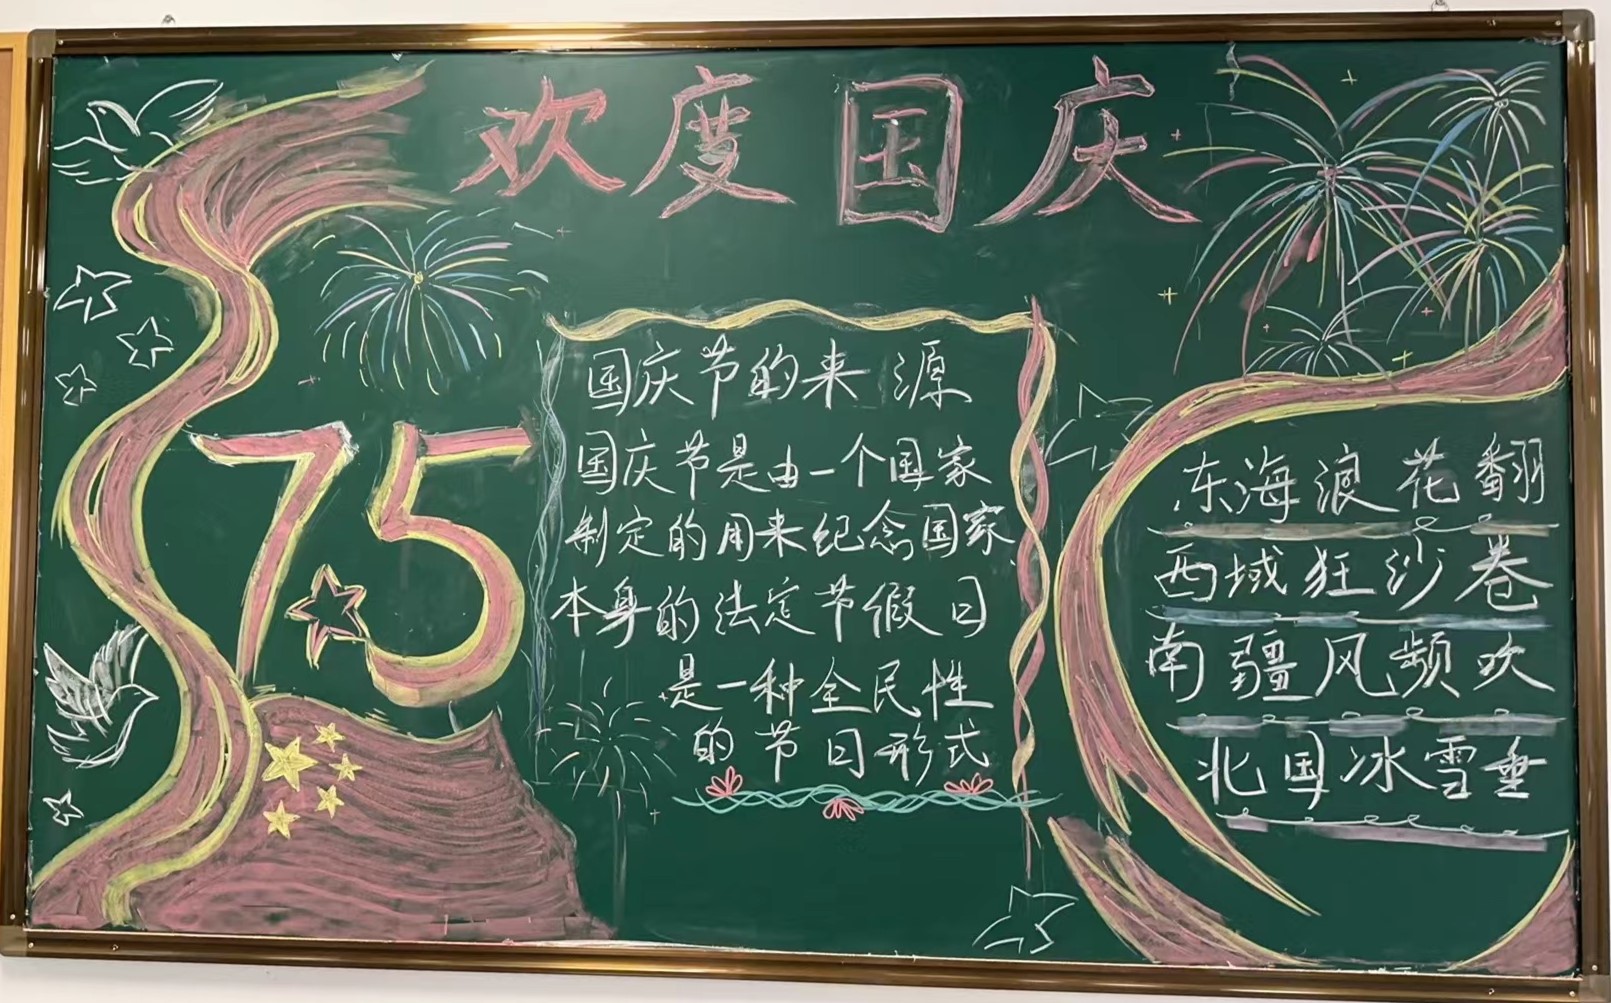 欢度国庆
75
国庆节的来源
国庆节是由一个国家
制定的用来纪念国家
本身的法定节假日
是一种全民性
的节日形式
东海浪花翻
西域狂沙卷
南疆风频欢
北国冰雪垂